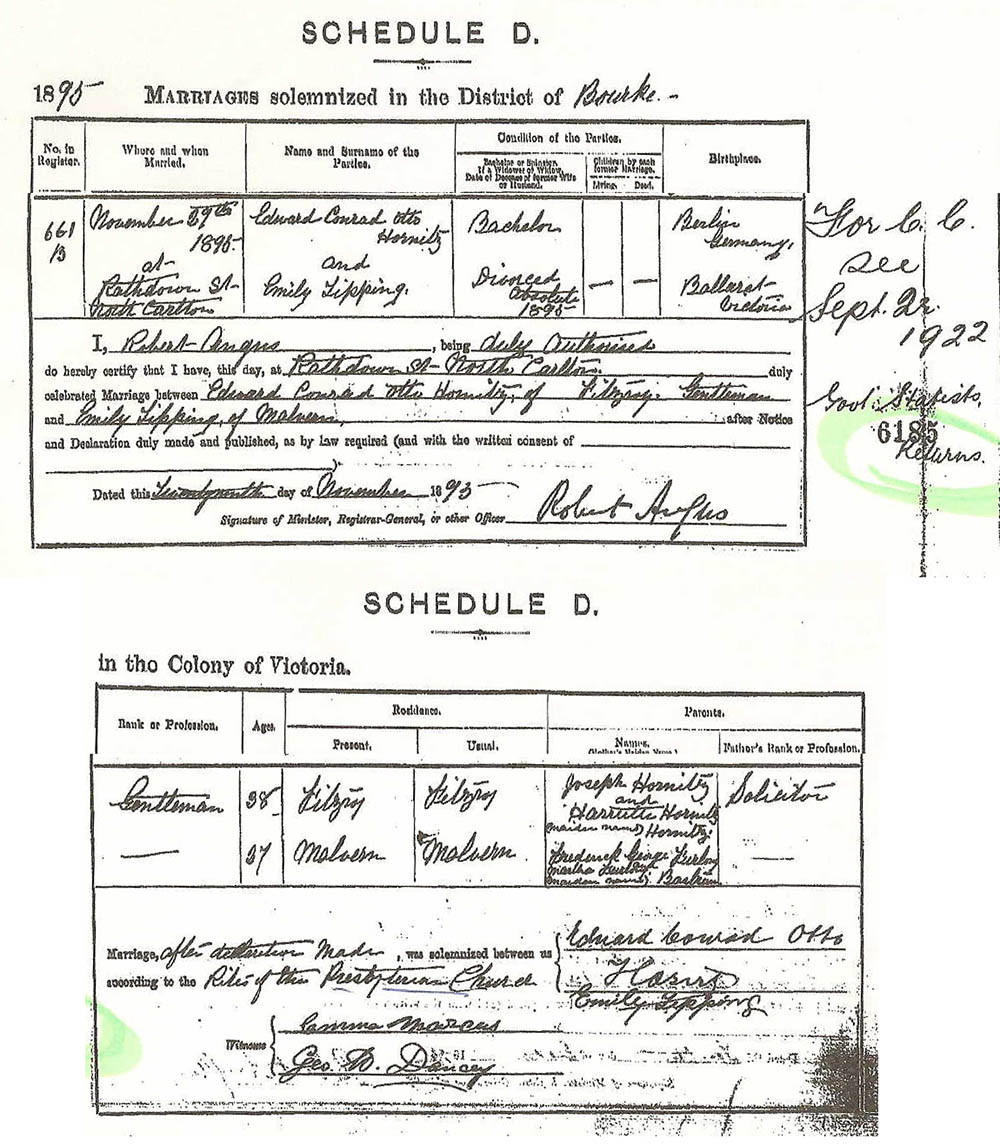 SCHEDULE D.
1895 MARRIAGES solemnized in the District of Bourke.-
No. in Register.
Where and when Married.
Name and Surname of the Parties.
Condition of the Parties.
Bachelor or Spinster. If a Widower or Widow, Date of Decease of former Wife or Husband.
Children by each former Marriage.
Living. Dead.
Birthplace.
661
B
November 29th
1895
at
Rathdown St
North Carlton
Edward Conrad Otto
Hornitz
and
Emily Tipping.
Bachelor
Divorced
Absolute
1895
— —
Berlin
Germany,
Ballarat
Victoria
For C. C.
see
Sept. 22
1922
Govt. Statists,
6185
Returns.
I, Robert Angus, being duly authorised
do hereby certify that I have, this day, at Rathdown St North Carlton duly
celebrated Marriage between Edward Conrad Otto Hornitz, of Fitzroy Gentleman
and Emily Tipping, of Malvern, after Notice
and Declaration duly made and published, as by law required (and with the written consent of
)
Dated this Twentyninth day of November 1895
Signature of Minister, Registrar-General, or other Officer Robert Angus
SCHEDULE D.
in the Colony of Victoria.
Rank or Profession.
Ages.
Residence.
Present. Usual.
Parents.
Names. (Mother's Maiden Name.)
Father's Rank or Profession.
Gentleman
38
Fitzroy
Fitzroy
Joseph Hornitz
and
Harriette Hornitz
(maiden name) Hornitz.
Solicitor
—
37
Malvern
Malvern
Frederick George
Martha
(maiden name)
—
Marriage, after declaration made, was solemnized between us
according to the Rites of the Presbyterian Church
Edward Conrad Otto
Emily Tipping
Witness
Emma Marcus
Geo. D. Dancey